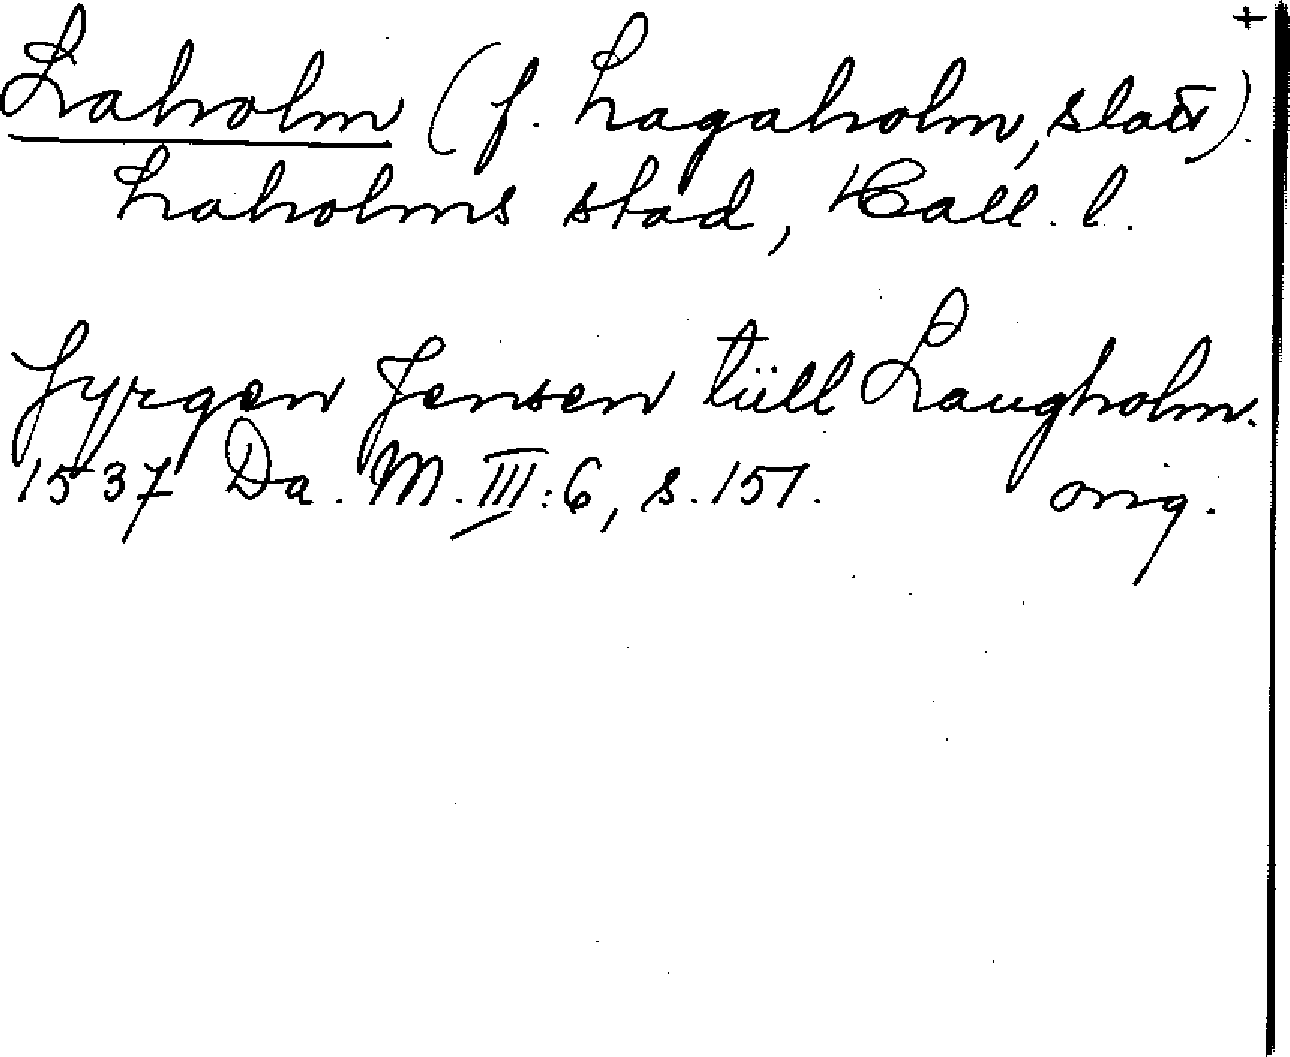 +
Laholm (f. Lagaholm, slott).
Laholms stad, Hall. l.
Jyrgen Jensen tüll Laugholm.
1537 Da. M. III:6, s. 151. orig.